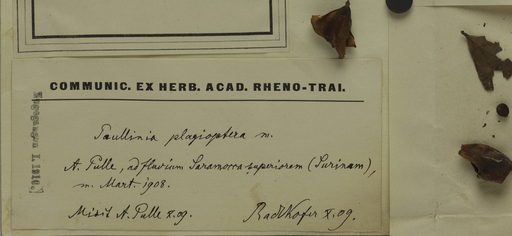 COMMUNIC. EX HERB. ACAD. RHENO-TRAI.
Paullinia plagioptera m.
A. Pulle, ad fluvium Saramacca superiorem (Surinam),
m. Mart. 1908.
Misit A. Pulle X.09. Radlkofer X.09.
Eingegangen I. 1910.